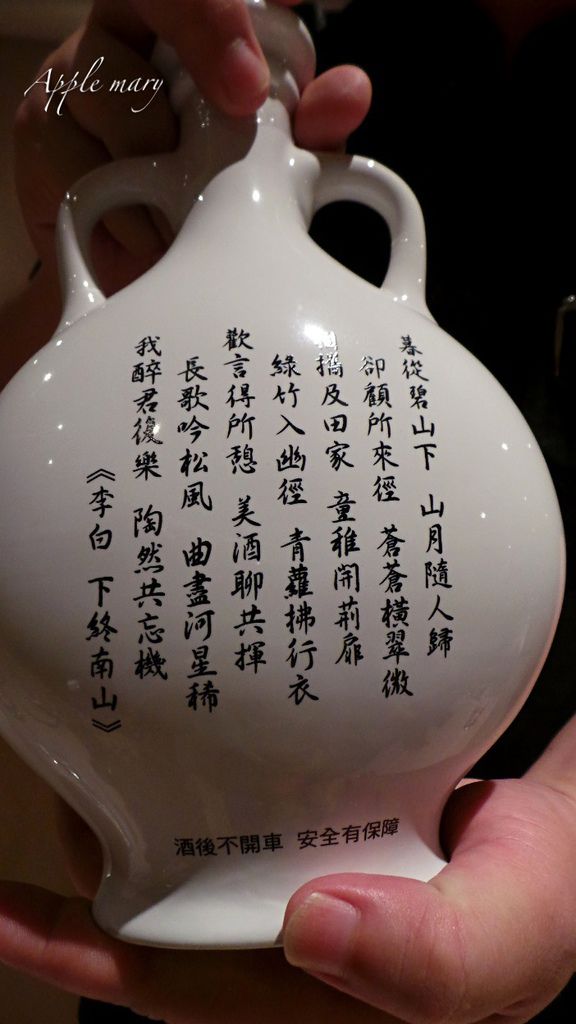 Apple mary
暮從碧山下 山月隨人歸
卻顧所來徑 蒼蒼橫翠微
相攜及田家 童稚開荊扉
綠竹入幽徑 青蘿拂行衣
歡言得所憩 美酒聊共揮
長歌吟松風 曲盡河星稀
我醉君復樂 陶然共忘機
《李白 下終南山》
酒後不開車 安全有保障